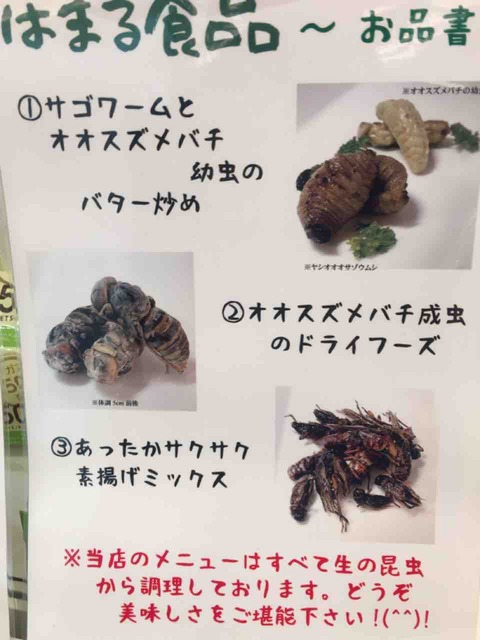 はまる食品 ～ お品書
①サゴワームと
オオスズメバチ
幼虫の
バター炒め
※オオスズメバチの幼
※ヤシオオオサゾウムシ
②オオスズメバチ成虫
のドライフーズ
※体調5cm前後
③あったかサクサク
素揚げミックス
※当店のメニューはすべて生の昆虫
から調理しております。どうぞ
美味しさをご堪能下さい!(^^)!